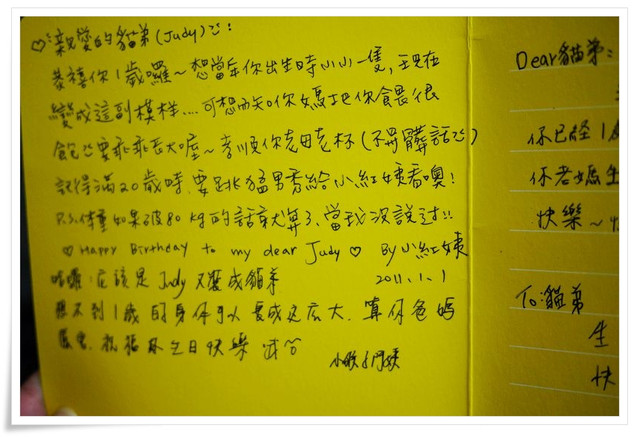 ♡親愛的貓弟(Judy):
恭禧你1歲囉~想當年你出生時小小一隻,現在
變成這副模樣...可想而知你媽把你餵很
飽要乖乖長大喔~孝順你老母老杯(不是髒話)
記得滿20歲時,要跳猛男秀給小紅姨看噢!
P.S.體重如果破80 kg的話就算了,當我沒說過!!
♡Happy Birthday to my dear Judy♡ By小紅姨
2011.1.1
應該是Judy 又變成貓弟
想不到1歲的身体可以長成这広大,算你爸媽
厲害,祝福你生日快樂
Dear貓弟:
你已經1
你老媽生
快樂~
To:貓弟
生
快